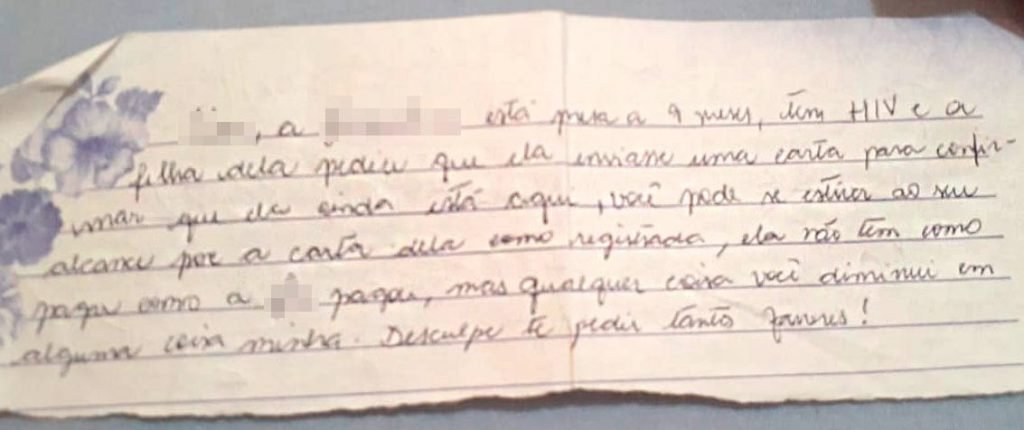 , a está presa a 9 meses, tem HIV e a
filha dela pediu que ela enviasse uma carta para confir-
mar que ela ainda está aqui, você pode se estiver ao seu
alcance por a carta dela como registrada, ela não tem como
pagar como a pagou, mas qualquer coisa você diminui em
alguma coisa minha. Desculpe te pedir tanto favores!